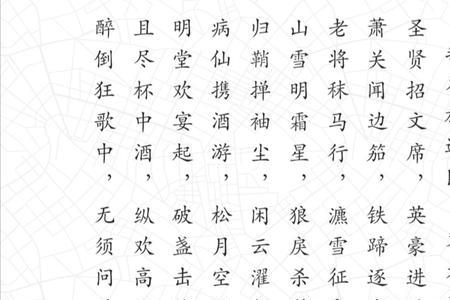 圣贤招文席，英豪进
萧关闻边笳，铁蹄逐
老将秣马行，瀌雪征
山雪明霜星，狼戾杀
归鞘掸袖尘，闲云濯
病仙携酒游，松月空
明堂欢宴起，破盏击
且尽杯中酒，纵欢高
醉倒狂歌中，无须问